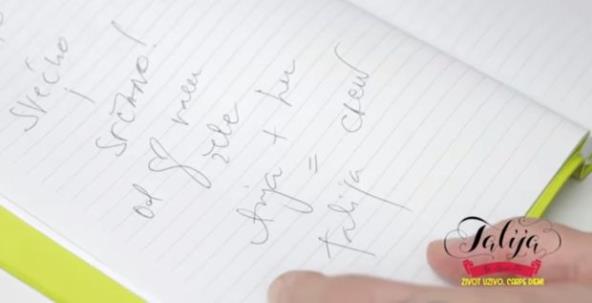 SREĆNO
i
SRČANO!
od vam
žele
Anja +
=
Talija crew
Talija
ŽIVOT UŽIVO, CARPE DIEM!